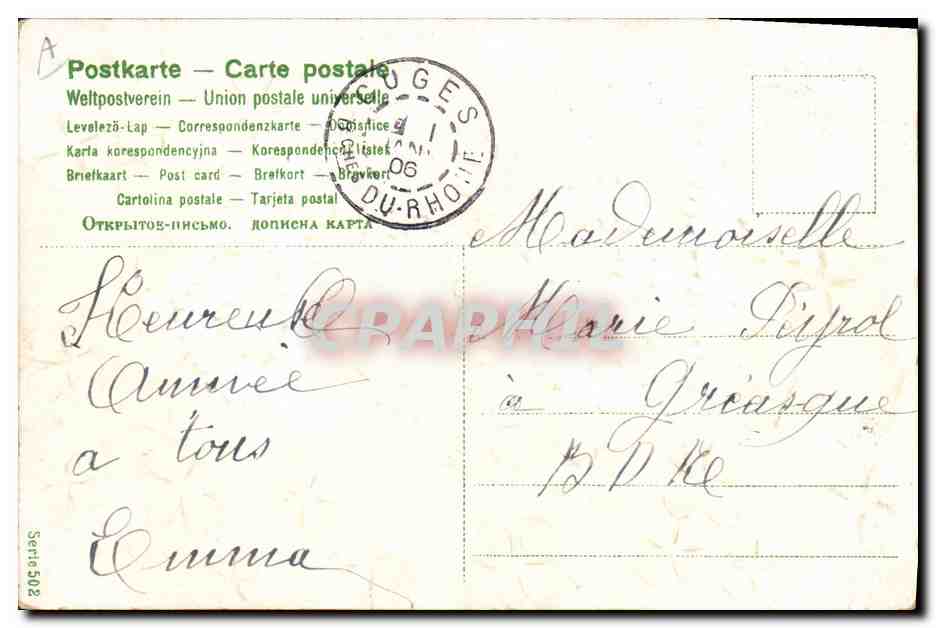 A
Postkarte — Carte postale
Weltpostverein — Union postale universelle
Levelező-Lap — Correspondenzkarte — Dopisnice
Karta korespondencyjna — Korespondenční lístek
Briefkaart — Post card — Brefkort — Brevkort
Cartolina postale — Tarjeta postal
Открытое-письмо. дописна карта
CUGES
1
JANV
06
BCHES DU-RHONE
Mademoiselle
Marie Peyrol
à Gréasque
B D Rh
Heureuse
Année
a tous
Emma
Serie 502
CPAPHIL